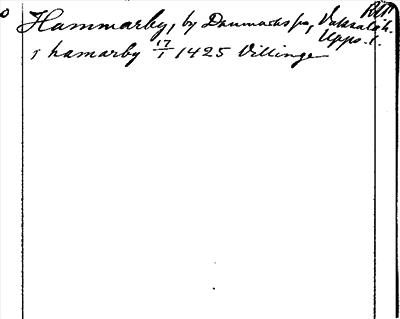 Hammarby, by Danmarks sn, Vaksala h.
Upps. l.
i hamarby 17/1 1425 Villinge